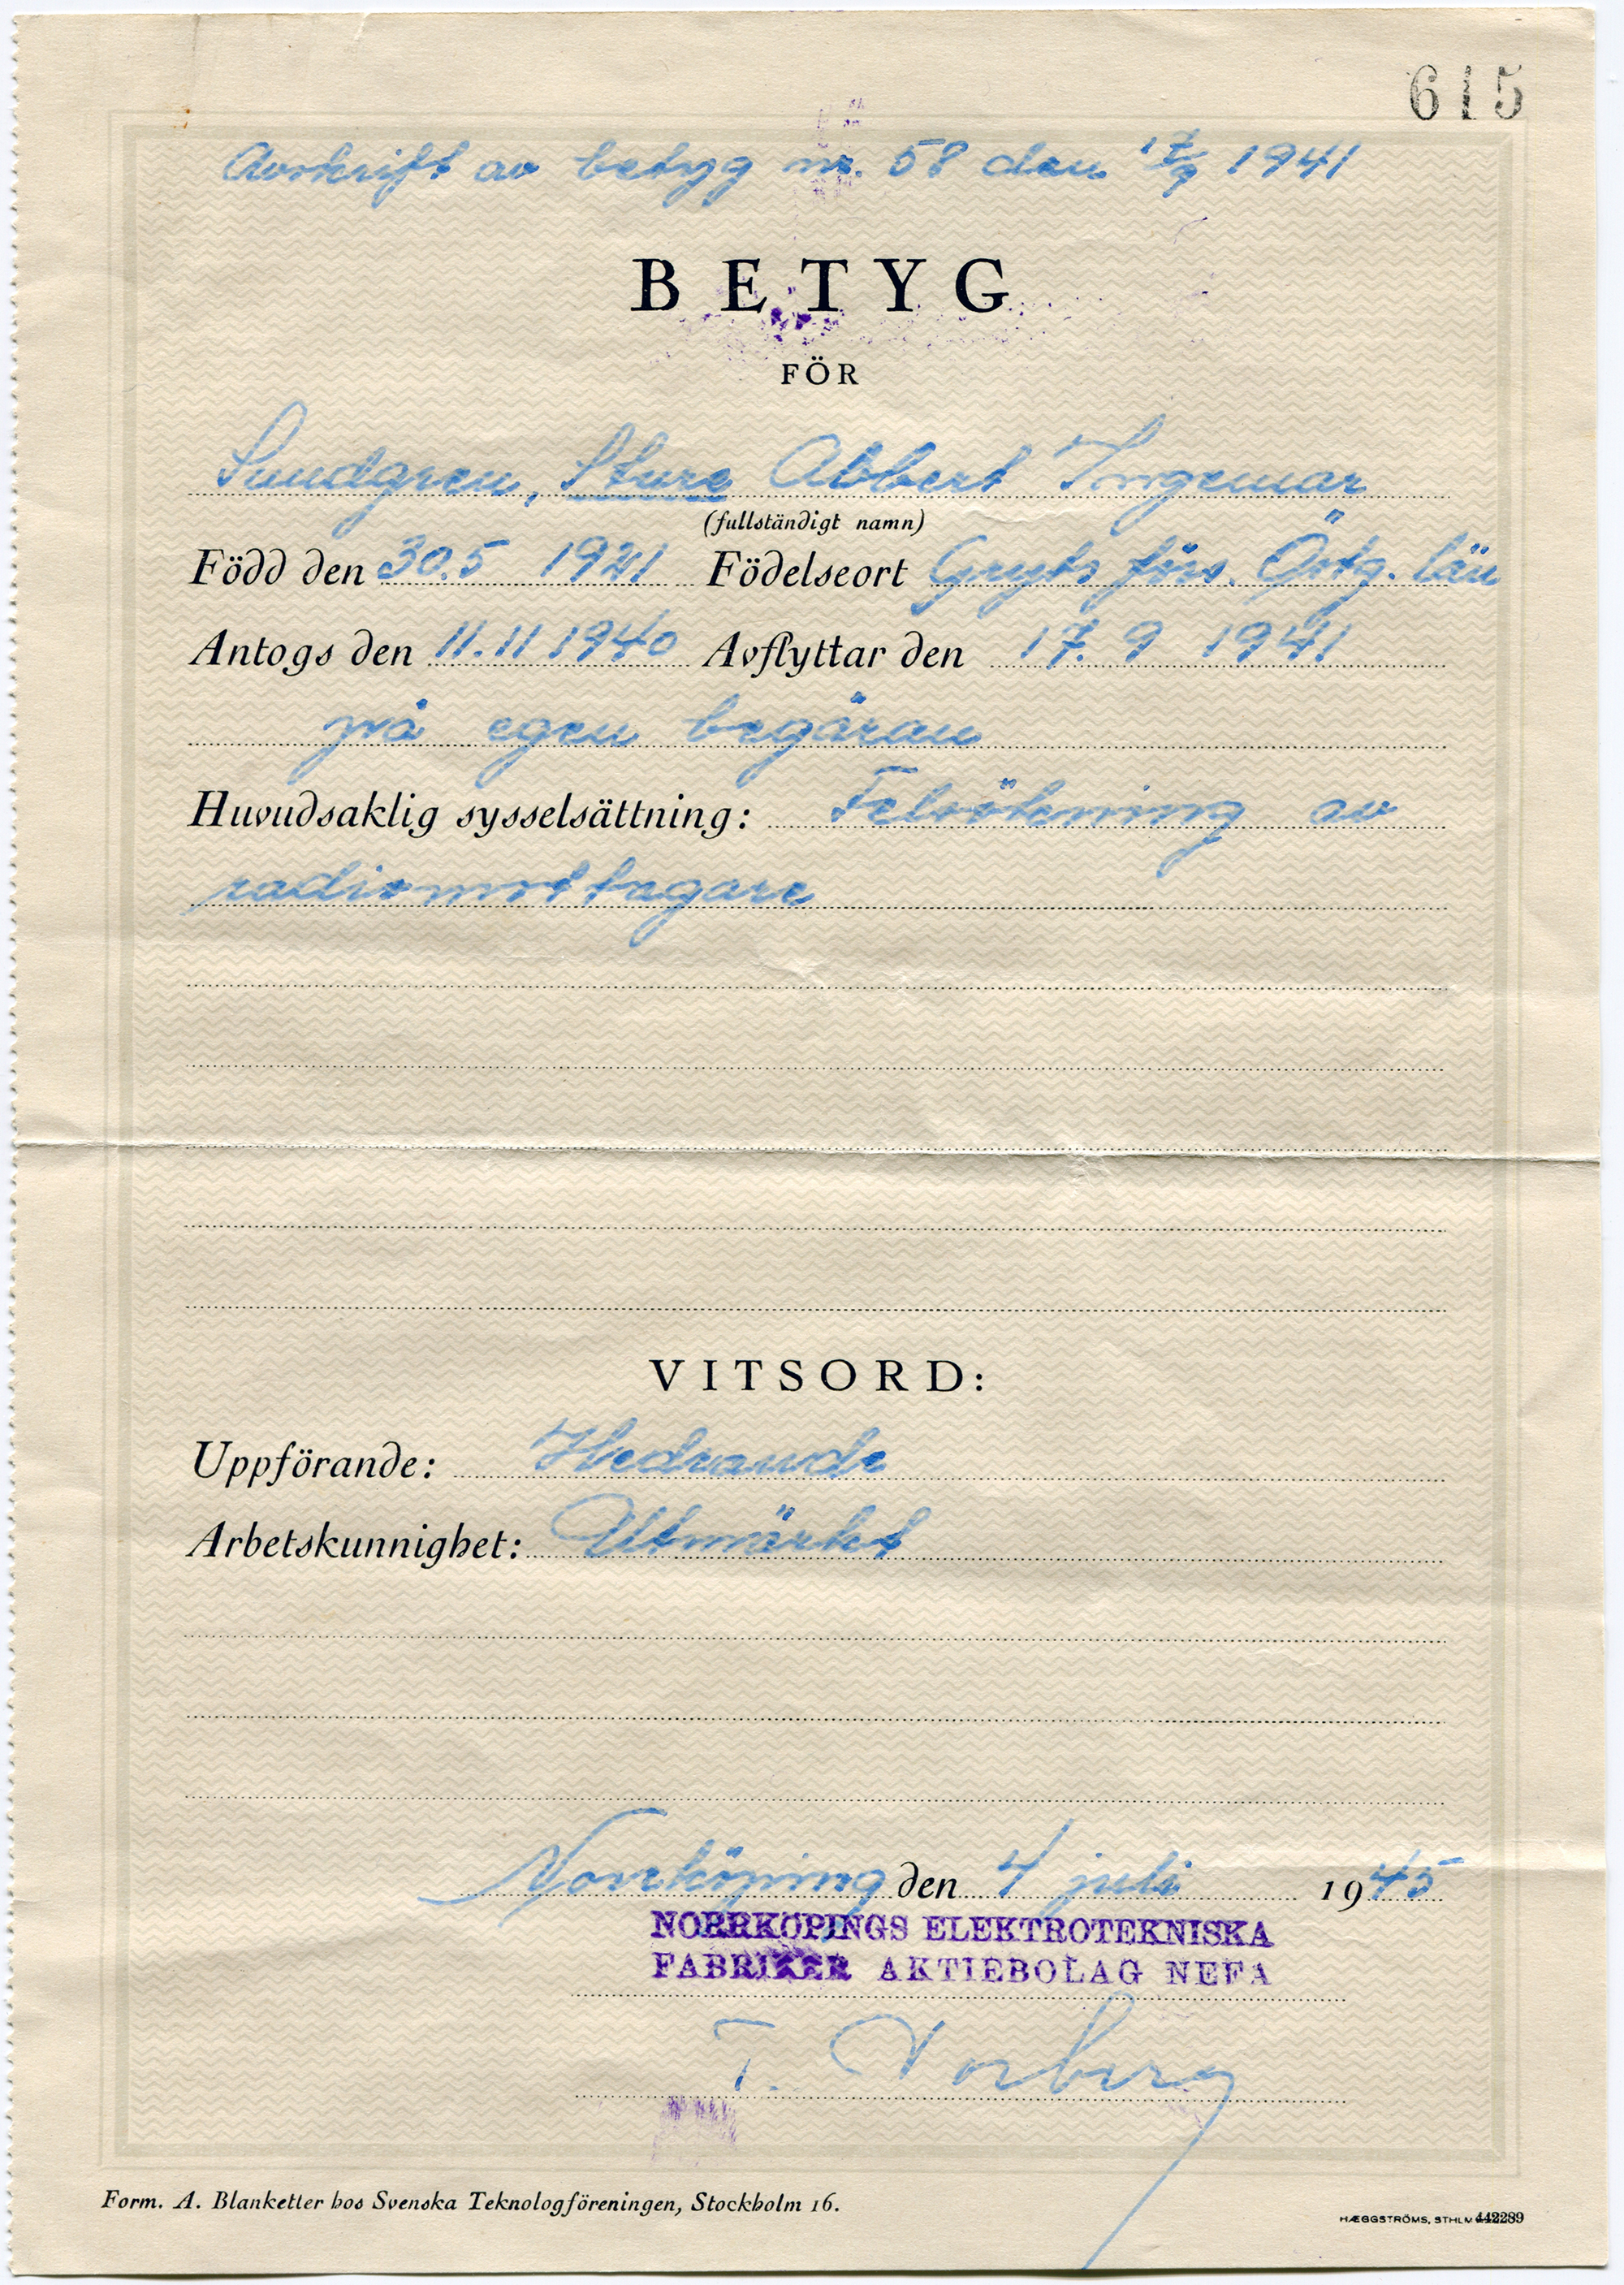 615
Avskrift av betyg nr. 58 den 17/9 1941
BETYG
FÖR
Sundgren, Sture Abbert Ingemar
(fullständigt namn)
Född den 30.5 1921 Födelseort Gryts förs. Östg. län
Antogs den 11.11 1940 Avflyttar den 17. 9 1941
på egen begäran
Huvudsaklig sysselsättning: Felsökning av
radiomottagare
VITSORD:
Uppförande: Hedrande
Arbetskunnighet: Utmärkt
Norrköping den 4 juli 1945
NORRKÖPINGS ELEKTROTEKNISKA
FABRIKER AKTIEBOLAG NEFA
T. Norberg
Form. A. Blanketter hos Svenska Teknologföreningen, Stockholm 16.
HÆGGSTRÖMS, STHLM 442289